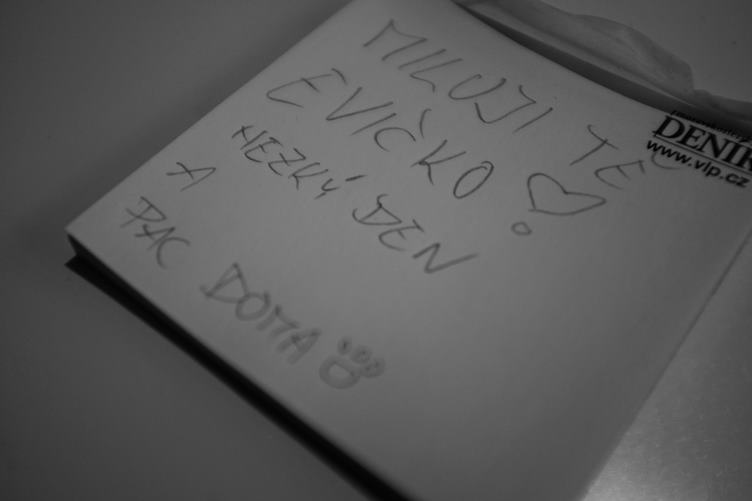 MILUJI TĚ
EVIČKO
HEZKÝ DEN
A
PAC DOMA
DENÍK
www.vlp.cz